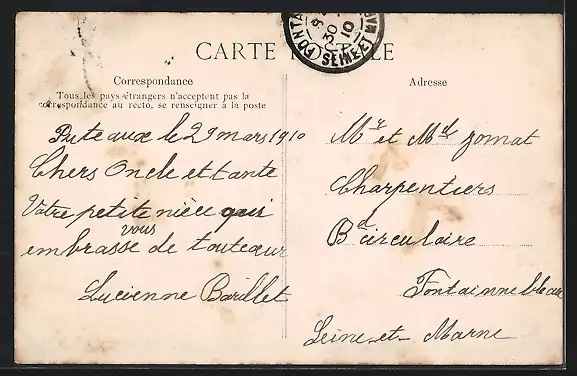 CARTE POSTALE
Correspondance
Tous les pays étrangers n'acceptent pas la
correspondance au recto, se renseigner à la poste
Puteaux le 29 mars 1910
Chers Oncle et tante
Votre petite nièce qui
vous
embrasse de toutcœur
Lucienne Barillet
Adresse
Mr et Md Jomat
Charpentiers
Bd circulaire
Fontainnebleau
Seine-et-Marne
30
10
SEINE ET MAR